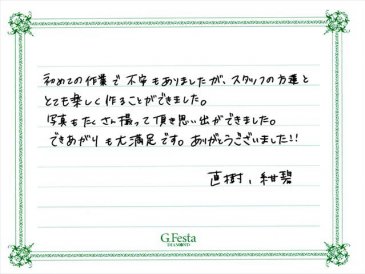 初めての作業で不安もありましたが、スタッフの方達と
とても楽しく作ることができました。
写真もたくさん撮って頂き思い出ができました。
できあがりも大満足です。ありがとうございました!!
直樹、紺碧
G.Festa
DIAMOND